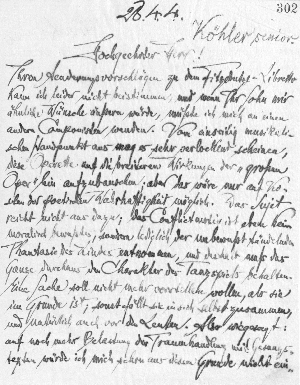 28.4.4.
302
Köhler senior.
Hochgeehrter Herr!
Ihren Aenderungsvorschlägen zu dem Libretto
kann ich leider nicht beistimmen, und wenn Ihr Sohn mir
ähnliche Wünsche äussern würde, müsste ich mich an einen
andern Componisten wenden. Vom einseitig musikali-
schen Standpunkt aus mag es sehr verlockend scheinen,
diese Operette auf die breiteren Wirkungen der „großen
Oper" hin aufzubauschen; aber das wäre nur auf Ko-
sten der poetischen Wahrhaftigkeit möglich. Das Sujet
reicht nicht aus dazu; das Conflictmotiv ist eben kein
moralisch bewusstes, sondern lediglich der unbewusst
Phantasie des Kindes entnommen, und deshalb muss das
Ganze durchaus den Charakter des Tanzspiels behalten.
Eine Sache soll nicht mehr vorstellen wollen, als sie
im Grunde ist; sonst fällt sie in sich selbst zusammen,
und natürlich auch vor den Leuten. Aber abgesehn:
auf noch mehr Belastung der Traumhandlung mit Gesangs-
texten würde ich mich schon aus diesem Grunde nicht ein-